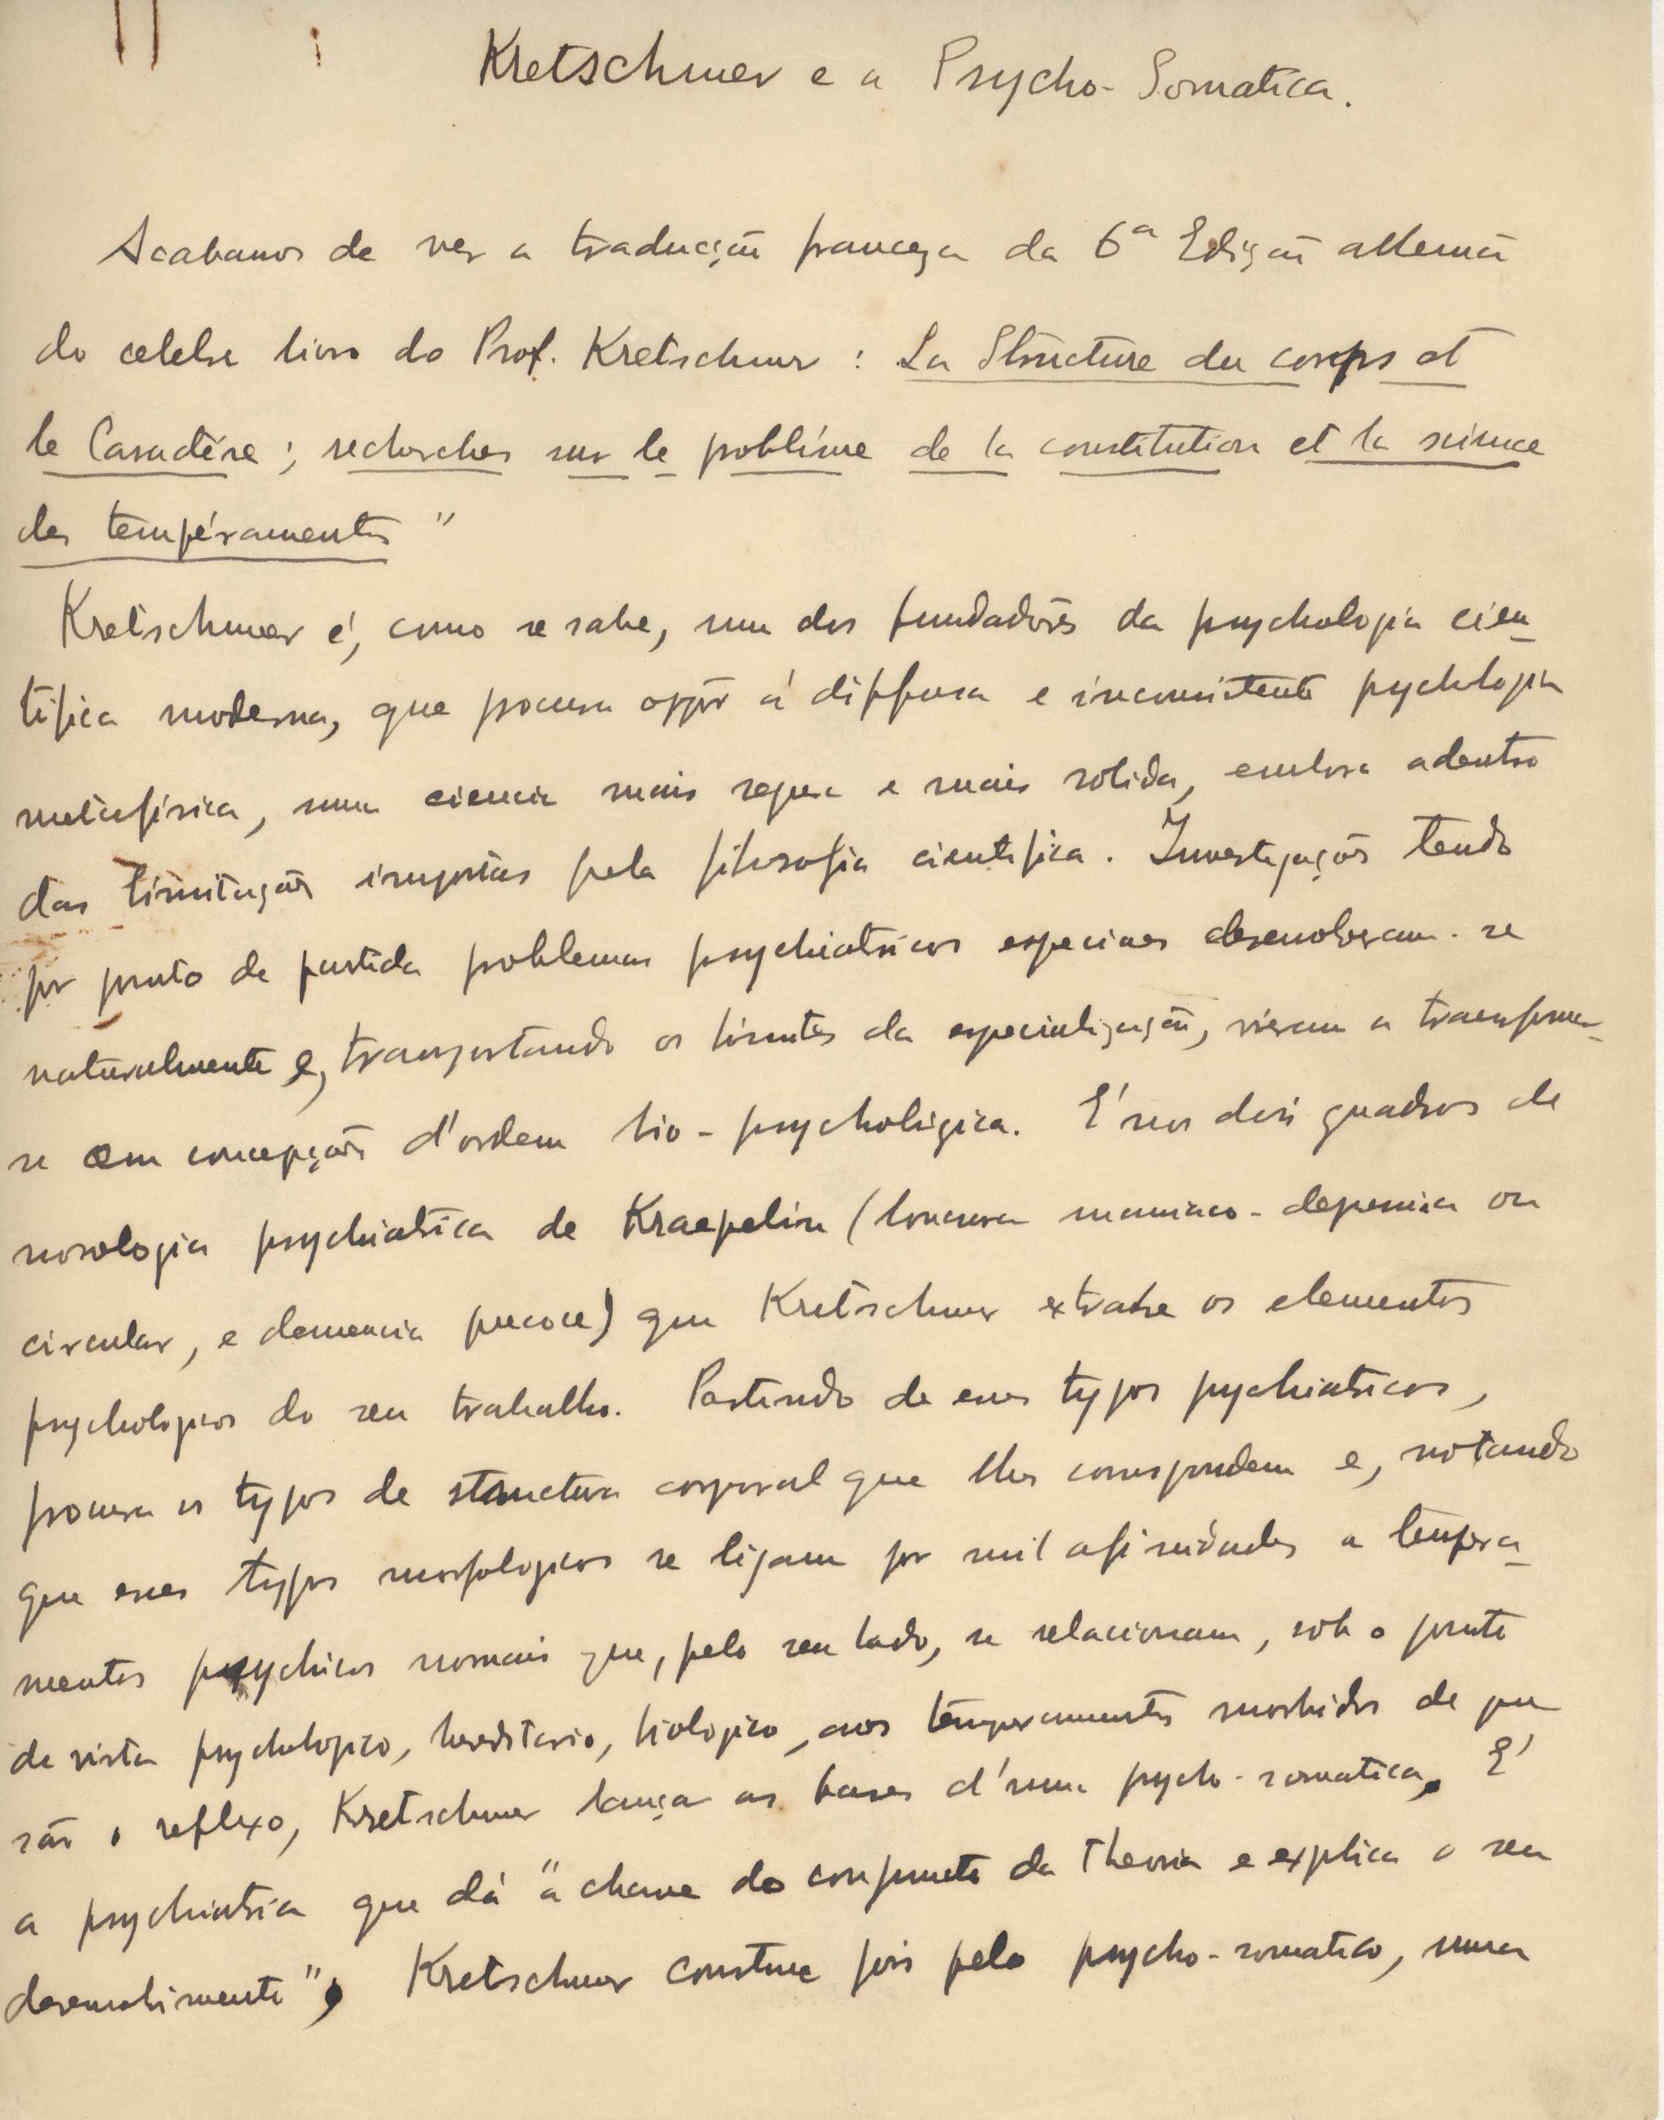 Kretschmer e a Psycho-Somatica.
Acabamos de ver a traducção franceza da 6ª Edição allemã
do celebre livro do Prof. Kretschmer : La Structure du corps et
le Caractère ; recherches sur le problème de la constitution et la science
des tempéraments "
Kretschmer é, como se sabe, um dos fundadores da psychologia cien-
tifica moderna, que procura oppôr á diffusa e inconsistente psychologia
metafisica, uma ciencia mais segura e mais solida, embora adentro
das limitações impostas pela filosofia cientifica. Investigações tendo
por ponto de partida problemas psychiatricos especiaes desenvolveram-se
naturalmente e, transportando os limites da especialização, vieram a transformar-
se em concepções d'ordem bio-psychologica. E' nos dois quadros de
nosologia psychiatrica de Kraepelin (loucura maniaco-depressiva ou
circular, e demencia precoce) que Kretschmer extrahe os elementos
psychologicos do seu trabalho. Partindo de esses typos psychiatricos,
procura os typos de structura corporal que lhes correspondem e, notando
que esses typos morfologicos se ligam por mil afinidades a tempera-
mentos psychicos normais que, pelo seu lado, se relacionam, sob o ponto
de vista psychologico, hereditario, biologico, aos temperamentos morbidos de que
são o reflexo, Kretschmer lança as bases d'uma psycho-somatica. E'
a psychiatria que dá "a chave do conjuncto da theoria e explica o seu
desenvolvimento", Kretschmer construe pois pelo psycho-somatico, uma